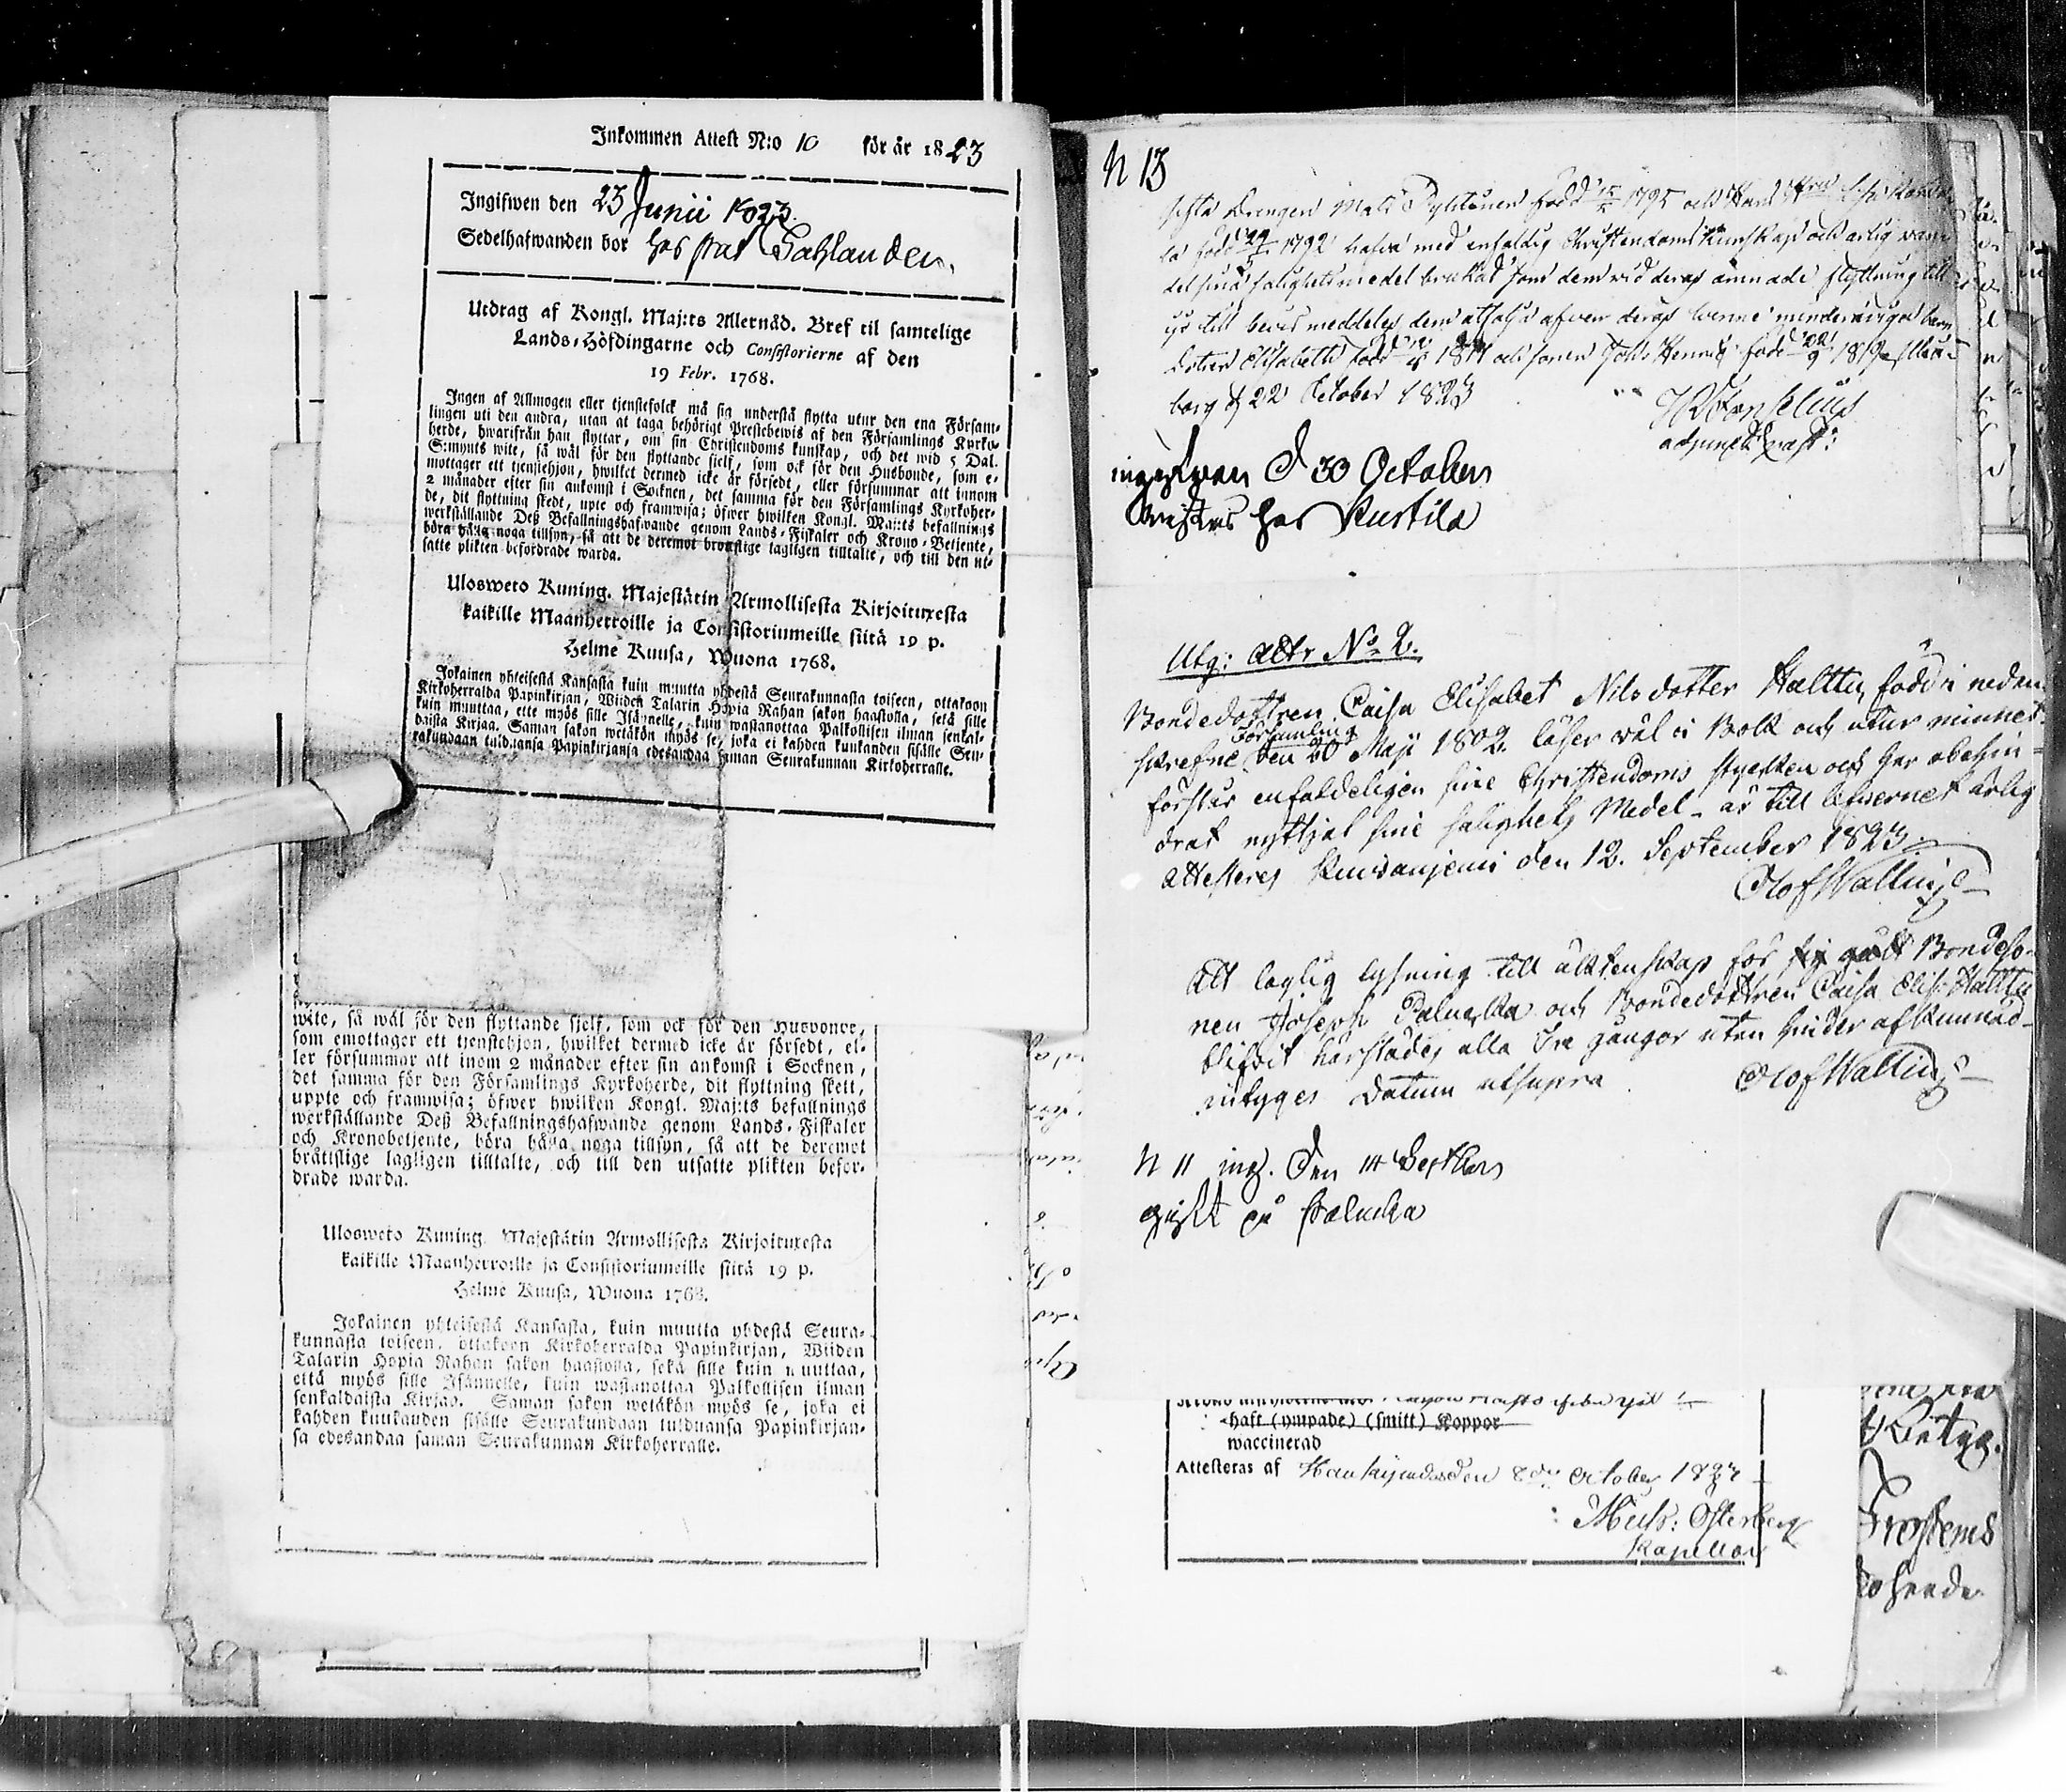 Inkommen Attest N:o 10 för år 1823
Ingifwen den 23 Junii 1823.
Sedelhafwanden bor hos prat Gahlander.
Utdrag af Kongl. Maj:ts Allernåd. Bref til samtelige
Lands-Höfdingarne och Consistorierne af den
19 Febr. 1768.
Ingen af Allmogen eller tjenstefolck må sig understå flytta utur den ena Försam-
lingen uti den andra, utan at taga behörigt Prestebewis af den Församlings Kyrko-
herde, hwarifrån han flyttar, om sin Christendoms kunskap, och det wid 5 Dal.
S:mynts wite, så wäl för den flyttande sielf, som ock för den Husbonde, som e-
mottager ett tjenstehjon, hwilket dermed icke är försedt, eller försummar att innom
2 månader efter sin ankomst i Socknen, det samma för den Församlings Kyrkoher-
de, dit flyttning skedt, upte och framwisa; öfwer hwilken Kongl. Maj:ts befallnings
werkställande Deß Befallningshafwande genom Lands-Fiskaler och Krono-Betjente,
böra hålla noga tillsyn, så att de deremot brottslige lagligen tilltalte, och till den ut-
satte plikten befordrade warda.
Ulosweto Kuning. Majestätin Armollisesta Kirjoituxesta
kaikille Maanherroille ja Consistoriumeille siitä 19 p.
Helme Kuusa, Wuona 1768.
Jokainen yhteisestä Kansasta kuin muutta yhdestä Seurakunnasta toiseen, ottakoon
Kirkoherralda Papinkirjan, Wiiden Talarin Hopia Rahan sakon haastolla, sekä sille
kuin muuttaa, ette myös sille Isännelle, kuin wastanottaa Palkollisen ilman senkal-
daista Kirjaa. Saman sakon wetäkön myös se, joka ei kahden kuukauden sisälle Seu-
rakundaan tulduansa Papinkirjansa edesandaa saman Seurakunnan Kirkoherralle.
wite, så wäl för den flyttande sielf, som ock för den Husbonde,
som emottager ett tjenstehjon, hwilket dermed icke är försedt, el-
ler försummar att inom 2 månader efter sin ankomst i Socknen,
det samma för den Församlings Kyrkoherde, dit flyttning skett,
uppte och framwisa; öfwer hwilken Kongl. Maj:ts befallnings
werkställande Deß Befallningshafwande genom Lands-Fiskaler
och Kronobetjente, böra hålla noga tillsyn, så att de deremot
bråttslige lagligen tilltalte, och till den utsatte plikten befor-
drade warda.
Ulosweto Kuning. Majestätin Armollisesta Kirjoituxesta
kaikille Maanherroille ja Consistoriumeille siitä 19 p.
Helme Kuusa, Wuona 1768.
Jokainen yhteisestä Kansasta, kuin muutta yhdestä Seura-
kunnasta toiseen, ottakoon Kirkoherralda Papinkirjan, Wiiden
Talarin Hopia Rahan sakon haastolla, sekä sille kuin muuttaa,
että myös sille Isännelle, kuin wastanottaa Palkollisen ilman
senkaldaista Kirjaa. Saman sakon wetäkön myös se, joka ei
kahden kuukauden sisälle Seurakundaan tulduansa Papinkirjan-
sa edesandaa saman Seurakunnan Kirkoherralle.
N 13
Drengen Matts född 1795 och Hans Hru Lisa
född 1792 hafva med enfaldig Christendoms Kunskap och ärlig
sina salighets medel brukat som dem vid deras ämnade flyttning till
till bevis meddeles, dem åtfölja äfven deras tvenne minderåriga barn
Dotren Elisabeth född 1811 och sonen Joh: Henric född
borg d 22 October 1823
adjunct: past:
ingifven d 30 October
vistas hos Kurtila
Utg: Att. No 2.
Bondedottren Caisa Elisabet Nilsdotter Halttu, född i nedan-
skrefne Församling den 20 Maji 1802. läser wäl i Bok och utur minnet.
förstår enfaldeligen sine Christendoms stycken och har obehin-
drat nyttjat sine salighets Medel - är till lefwernet ärlig
attesteras Kuusanjemi den 12. September 1823.
Olof Walling
Att laglig lysning till äktenskap för Bondeso-
nen Joseph Palucka och Bondedottren Caisa Elis: Halttu
blifvit härstädes alla Tre gånger uten hinder afkunnad
intyges Datum utsupra
Olof Walling
N 11 ing. den 14 Septbris
gift på Palucka
haft (ympade) (smitt) Koppor
waccinerad
Attesteras af Haukipudas den 8de October 1823
Mich: Österberg
Kapellan
Betyg.